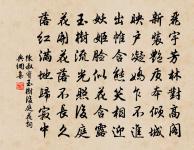 麗宇芳林對高閣
新裝艷質本傾城
映戶凝嬌乍不進
出帷含態笑相迎
妖姬臉似花含露
玉樹流光照後庭
花開花落不長久
落紅滿地歸寂中
陳叔寶玉樹後庭花